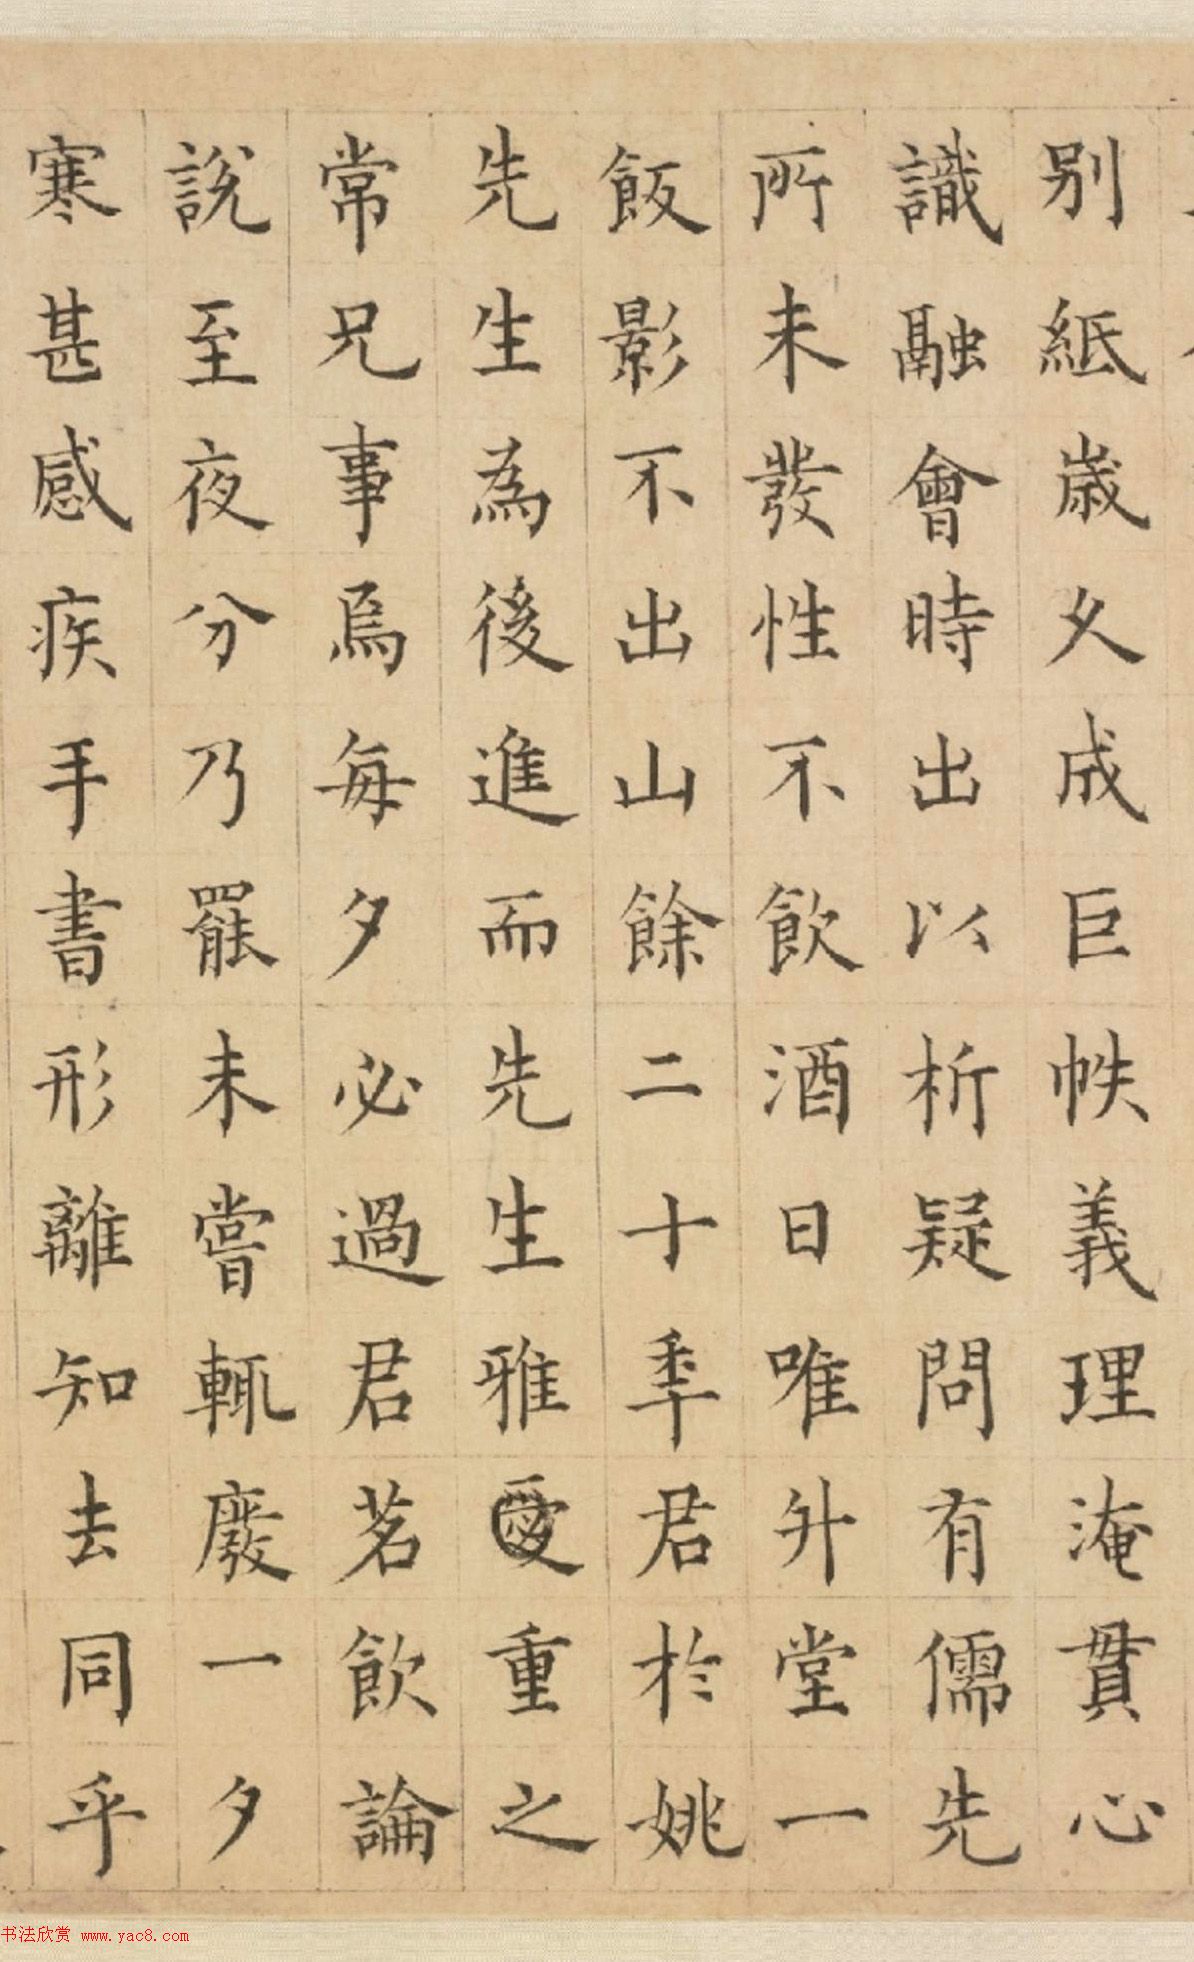 别紙歲久成巨帙義理淹貫心
識融會時出以析疑問有儒先
所未發性不飲酒日唯升堂一
飯影不出山餘二十秊君於姚
先生為後進而先生雅愛重之
常兄事焉每夕必過君茗飲論
說至夜分乃罷未嘗輒廢一夕
寒甚感疾手書形離知去同乎
书法欣赏 www.yac8.com